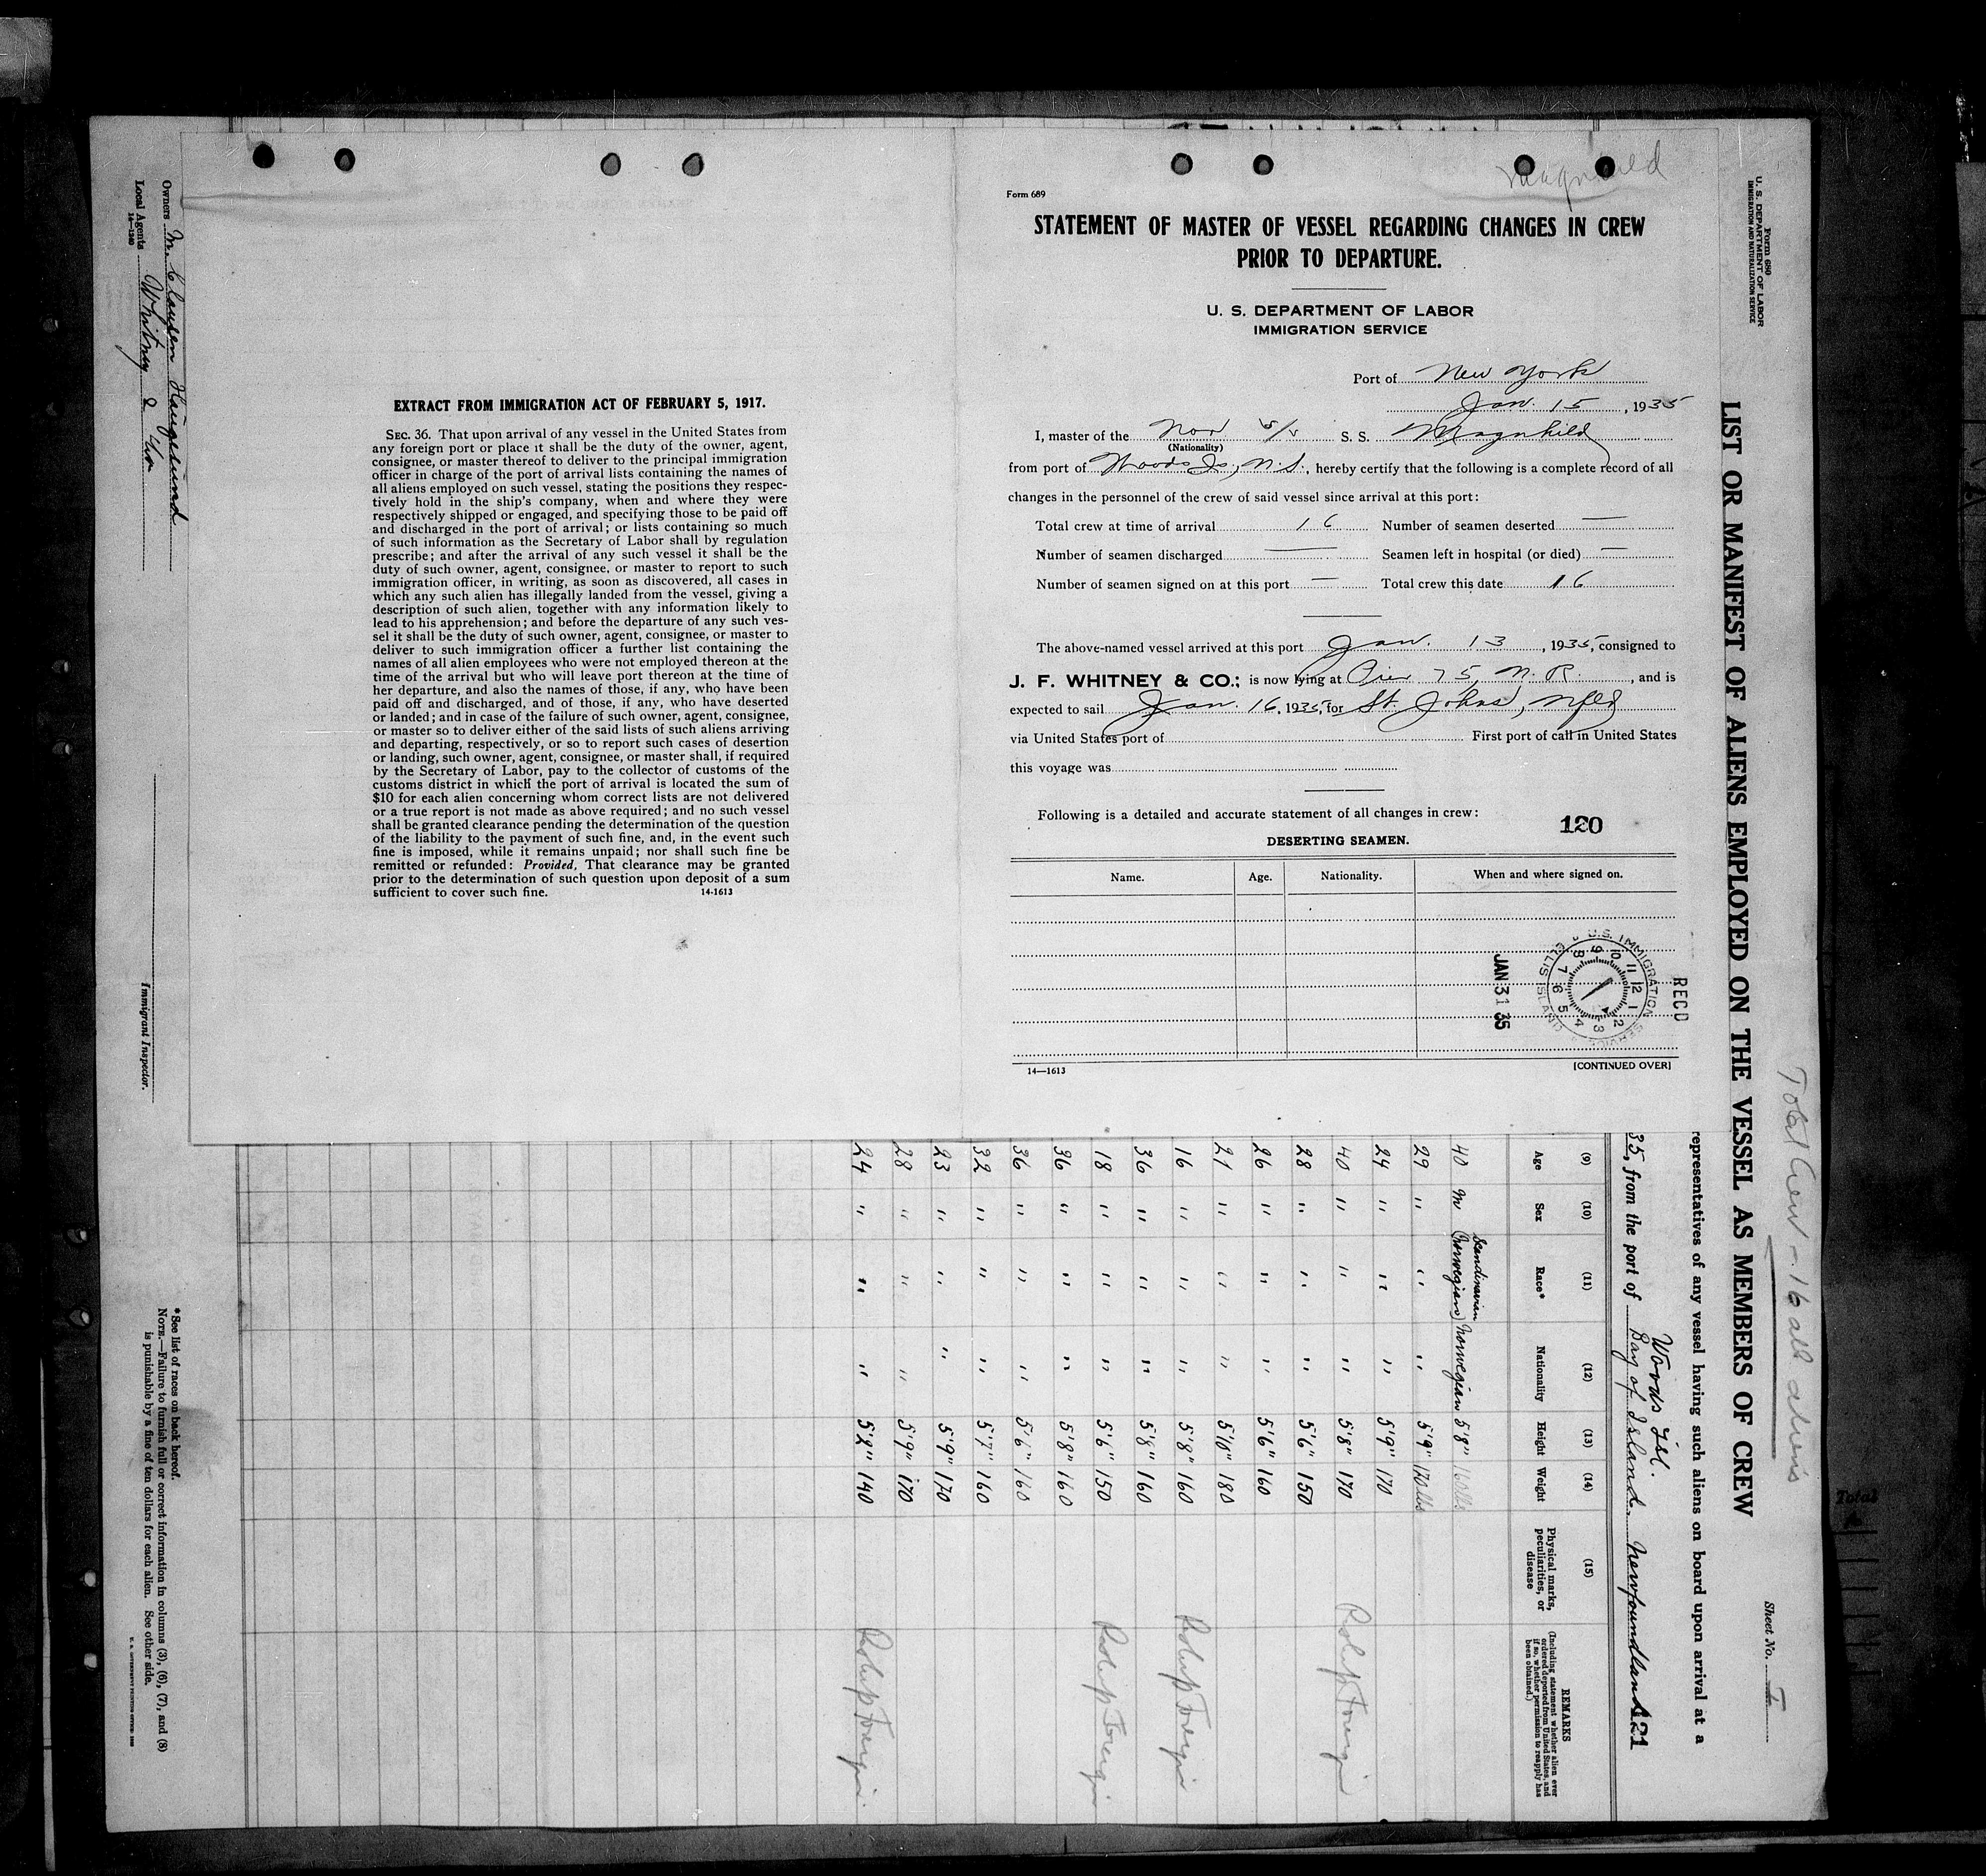 Magnhild
Form 689
STATEMENT OF MASTER OF VESSEL REGARDING CHANGES IN CREW
PRIOR TO DEPARTURE.
U. S. DEPARTMENT OF LABOR
IMMIGRATION SERVICE
Port of New York
Jan. 15, 1935
I, master of the Nor s/s S. S. Magnhild
(Nationality)
from port of Woods Is., N.S., hereby certify that the following is a complete record of all
changes in the personnel of the crew of said vessel since arrival at this port:
Total crew at time of arrival 16 Number of seamen deserted —
Number of seamen discharged — Seamen left in hospital (or died) —
Number of seamen signed on at this port — Total crew this date 16
The above-named vessel arrived at this port Jan. 13, 1935, consigned to
J. F. WHITNEY & CO.; is now lying at Pier 75, N. R., and is
expected to sail Jan. 16, 1935, for St. Johns, Nfld
via United States port of First port of call in United States
this voyage was
Following is a detailed and accurate statement of all changes in crew:
120
DESERTING SEAMEN.
Name. Age. Nationality. When and where signed on.
RECD
U.S. IMMIGRATION SERVICE
ELLIS ISLAND
1 2 3 4 5 6 7 8 9 10 11 12
JAN 31 35
14—1613
[CONTINUED OVER]
EXTRACT FROM IMMIGRATION ACT OF FEBRUARY 5, 1917.
SEC. 36. That upon arrival of any vessel in the United States from
any foreign port or place it shall be the duty of the owner, agent,
consignee, or master thereof to deliver to the principal immigration
officer in charge of the port of arrival lists containing the names of
all aliens employed on such vessel, stating the positions they respec-
tively hold in the ship's company, when and where they were
respectively shipped or engaged, and specifying those to be paid off
and discharged in the port of arrival; or lists containing so much
of such information as the Secretary of Labor shall by regulation
prescribe; and after the arrival of any such vessel it shall be the
duty of such owner, agent, consignee, or master to report to such
immigration officer, in writing, as soon as discovered, all cases in
which any such alien has illegally landed from the vessel, giving a
description of such alien, together with any information likely to
lead to his apprehension; and before the departure of any such ves-
sel it shall be the duty of such owner, agent, consignee, or master to
deliver to such immigration officer a further list containing the
names of all alien employees who were not employed thereon at the
time of the arrival but who will leave port thereon at the time of
her departure, and also the names of those, if any, who have been
paid off and discharged, and of those, if any, who have deserted
or landed; and in case of the failure of such owner, agent, consignee,
or master so to deliver either of the said lists of such aliens arriving
and departing, respectively, or so to report such cases of desertion
or landing, such owner, agent, consignee, or master shall, if required
by the Secretary of Labor, pay to the collector of customs of the
customs district in which the port of arrival is located the sum of
$10 for each alien concerning whom correct lists are not delivered
or a true report is not made as above required; and no such vessel
shall be granted clearance pending the determination of the question
of the liability to the payment of such fine, and, in the event such
fine is imposed, while it remains unpaid; nor shall such fine be
remitted or refunded: Provided, That clearance may be granted
prior to the determination of such question upon deposit of a sum
sufficient to cover such fine.
14-1613
Form 680
U. S. DEPARTMENT OF LABOR
IMMIGRATION AND NATURALIZATION SERVICE
Total Crew - 16 all aliens
Sheet No. 1
LIST OR MANIFEST OF ALIENS EMPLOYED ON THE VESSEL AS MEMBERS OF CREW
representatives of any vessel having such aliens on board upon arrival at a
Woods Isl.
35, from the port of Bay of Island. Newfoundland 121
(9) (10) (11) (12) (13) (14) (15)
Age Sex Race* Nationality Height Weight Physical marks, peculiarities, or disease
REMARKS
(Including statement whether alien ever ordered deported from United States, and if so, whether permission to reapply has been obtained.)
40 M Scandinavian (Norwegian) Norwegian 5'8" 160lbs
29 " " " 5'9" 170lbs
24 " " " 5'9" 170
40 " " " 5'8" 170
28 " " " 5'6" 150
26 " " " 5'6" 160
21 " " " 5'10" 180
16 " " " 5'8" 160
36 " " " 5'8" 160
18 " " " 5'6" 150
36 " " " 5'8" 160
36 " " " 5'6" 160
32 " " " 5'7" 160
23 " " " 5'9" 170
28 " " " 5'9" 170
24 " " " 5'2" 140
*See list of races on back hereof.
NOTE.—Failure to furnish full or correct information in columns (3), (6), (7), and (8)
is punishable by a fine of ten dollars for each alien. See other side.
Owners M. Clausen Haugesund
Local Agents Whitney & Co
14—1240
Immigrant Inspector.
Total